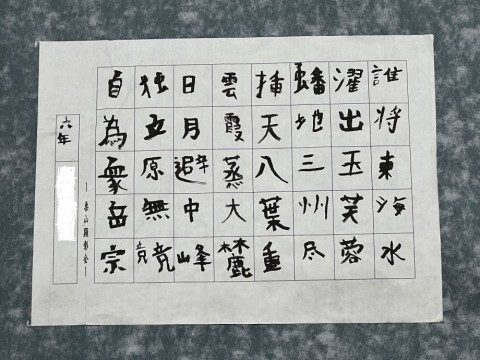 誰将東海水
濯出玉芙蓉
蟠地三州尽
挿天八葉重
雲霞蒸大麓
日月避中峰
独立原無競
自為衆岳宗
六年
―栗山顕彰会―